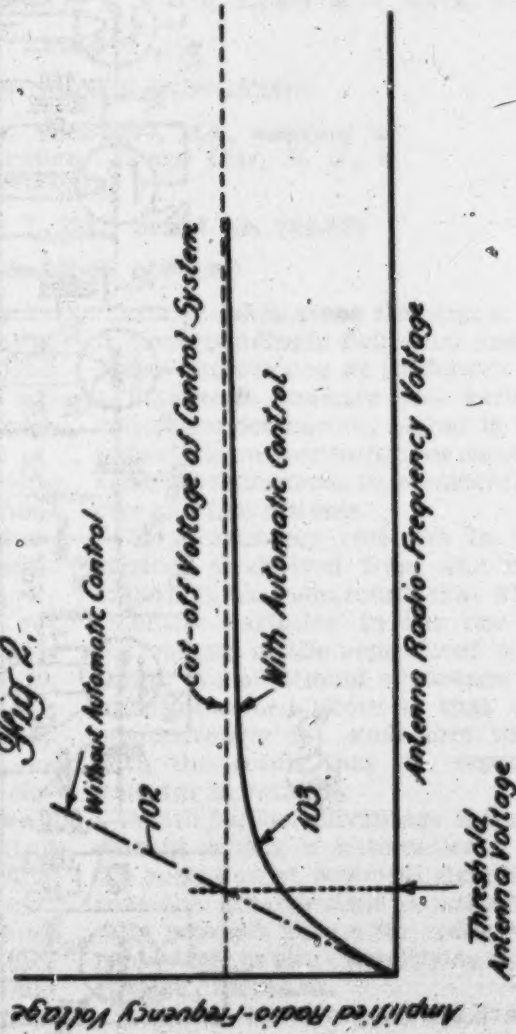 Fig. 2.
Without Automatic Control
102
Cut-off Voltage of Control System
With Automatic Control
103
Antenna Radio-Frequency Voltage
Threshold
Antenna Voltage
Amplified Radio-Frequency Voltage